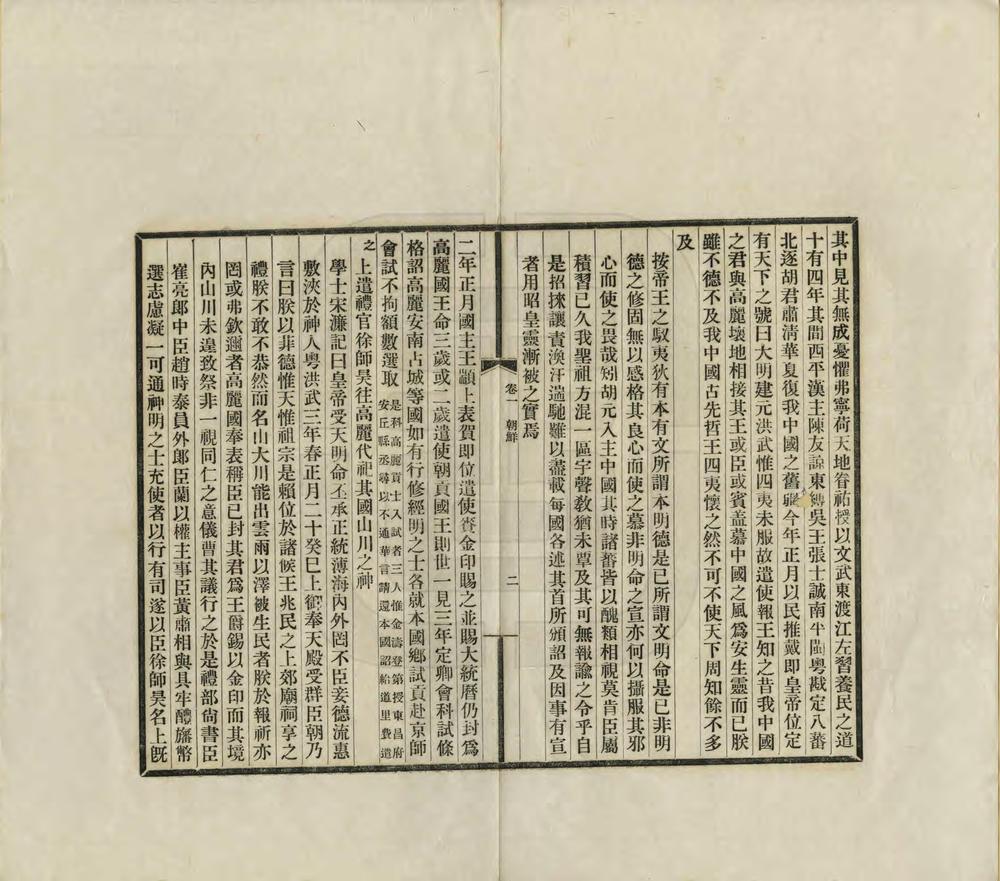 其中見其無成憂懼弗寧荷天地眷祐授以文武東渡江左習養民之道
十有四年其間西平漢王陳友諒東縛吳王張士誠南平閩粵戡定八蕃
北逐胡君肅清華夏復我中國之舊疆今年正月以民推戴即皇帝位定
有天下之號曰大明建元洪武惟四夷未服故遣使報王知之昔我中國
之君與高麗壤地相接其王或臣或賓盖慕中國之風為安生靈而已朕
雖不德不及我中國古先哲王四夷懷之然不可不使天下周知餘不多
及
按帝王之馭夷狄有本有文所謂本明德是已所謂文明命是已非明
德之修固無以感格其良心而使之慕非明命之宣亦何以攝服其邪
心而使之畏哉矧胡元入主中國其時諸蕃皆以醜類相視莫肯臣屬
積習已久我聖祖方混一區宇聲教猶未覃及其可無報諭之令乎自
是招徠讓責渙汗遄馳難以盡載每國各述其首所頒詔及因事有宣
者用昭皇靈漸被之實焉
卷一 朝鮮 二
二年之正月國主王顓上表賀即位遣使賫金印賜之並賜大統曆仍封為
高麗國王命三歲或二歲遣使朝貢國王則世一見三年定鄉會科試條
格詔高麗安南占城等國如有行修經明之士各就本國鄉試貢赴京師
會試不拘額數選取是科高麗貢士入試者三人惟金濤登第授東昌府
安丘縣丞尋以不通華言請還本國詔給道里費遣
之上遣禮官徐師昊往高麗代祀其國山川之神
學士宋濂記曰皇帝受天明命丕承正統薄海內外罔不臣妾德流惠
敷浹於神人粵洪武三年春正月二十癸巳上御奉天殿受群臣朝乃
言曰朕以菲德惟天惟祖宗是賴位於諸候王兆民之上郊廟祠享之
禮朕不敢不恭然而名山大川能出雲雨以澤被生民者朕於報祈亦
罔或弗欽邇者高麗國奉表稱臣已封其君為王爵錫以金印而其境
內山川未遑致祭非一視同仁之意儀曹其議行之於是禮部尚書臣
崔亮郎中臣趙時泰員外郎臣蘭以權主事臣黃肅相與具牢醴旛幣
選志慮凝一可通神明之士充使者以行有司遂以臣徐師昊名上既